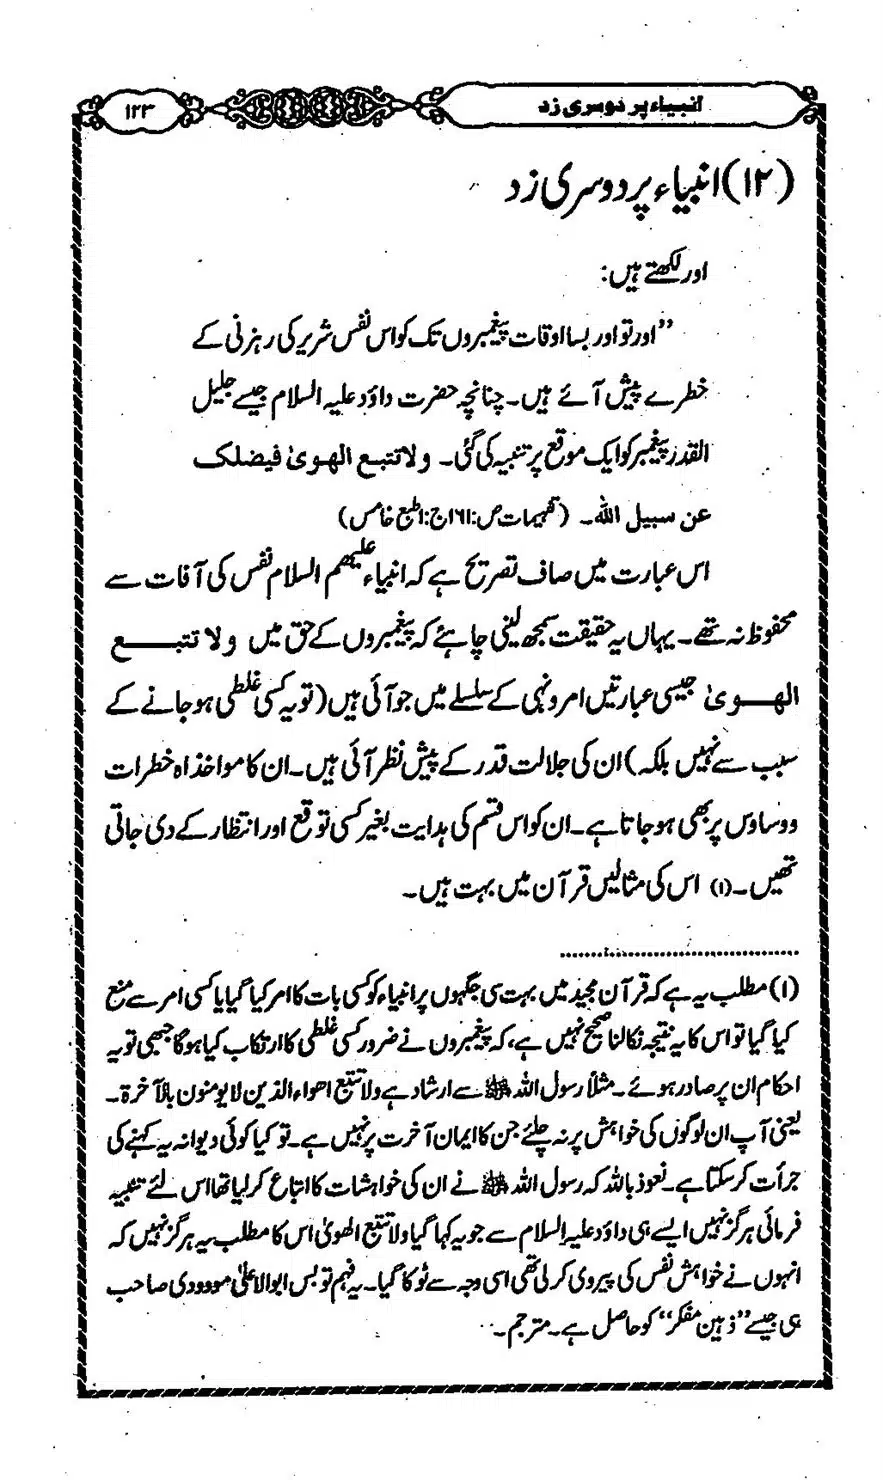 انبیاء پر دوسری زد
۱۲۳
(۱۲) انبیاء پر دوسری زد
اور لکھتے ہیں:
"اور تو اور بسا اوقات پیغمبروں تک کو اس نفس شریر کی رہزنی کے
خطرے پیش آئے ہیں۔ چنانچہ حضرت داؤد علیہ السلام جیسے جلیل
القدر پیغمبر کو ایک موقع پر تنبیہ کی گئی۔ ولا تتبع الهویٰ فیضلک
عن سبیل اللہ۔ (تفہیمات ص:۱۶۱ ج:۱ طبع خامس)
اس عبارت میں صاف تصریح ہے کہ انبیاء علیہم السلام نفس کی آفات سے
محفوظ نہ تھے۔ یہاں یہ حقیقت سمجھ لینی چاہئے کہ پیغمبروں کے حق میں ولا تتبع
الهویٰ جیسی عبارتیں امر و نہی کے سلسلے میں جو آئی ہیں (تو یہ کسی غلطی ہو جانے کے
سبب سے نہیں بلکہ) ان کی جلالت قدر کے پیش نظر آئی ہیں۔ ان کا مواخذاہ خطرات
و وساوس پر بھی ہو جاتا ہے۔ ان کو اس قسم کی ہدایت بغیر کسی توقع اور انتظار کے دی جاتی
تھیں۔(۱) اس کی مثالیں قرآن میں بہت ہیں۔
(۱) مطلب یہ ہے کہ قرآن مجید میں بہت سی جگہوں پر انبیاء کو کسی بات کا امر کیا گیا یا کسی امر سے منع
کیا گیا تو اس کا یہ نتیجہ نکالنا صحیح نہیں ہے، کہ پیغمبروں نے ضرور کسی غلطی کا ارتکاب کیا ہوگا جبھی تو یہ
احکام ان پر صادر ہوئے۔ مثلاً رسول اللہ ﷺ سے ارشاد ہے ولا تتبع اهواء الذین لا یومنون بالآخرة۔
یعنی آپ ان لوگوں کی خواہش پر نہ چلئے جن کا ایمان آخرت پر نہیں ہے۔ تو کیا کوئی دیوانہ یہ کہنے کی
جرأت کر سکتا ہے۔ نعوذ باللہ کہ رسول اللہ ﷺ نے ان کی خواہشات کا اتباع کر لیا تھا اس لئے تنبیہ
فرمائی ہرگز نہیں ایسے ہی داؤد علیہ السلام سے جو یہ کہا گیا ولا تتبع الهویٰ اس کا مطلب یہ ہرگز نہیں کہ
انہوں نے خواہش نفس کی پیروی کر لی تھی اسی وجہ سے ٹوکا گیا۔ یہ فہم تو بس ابوالاعلیٰ مووودی صاحب
ہی جیسے "ذہین مفکر" کو حاصل ہے۔ مترجم۔